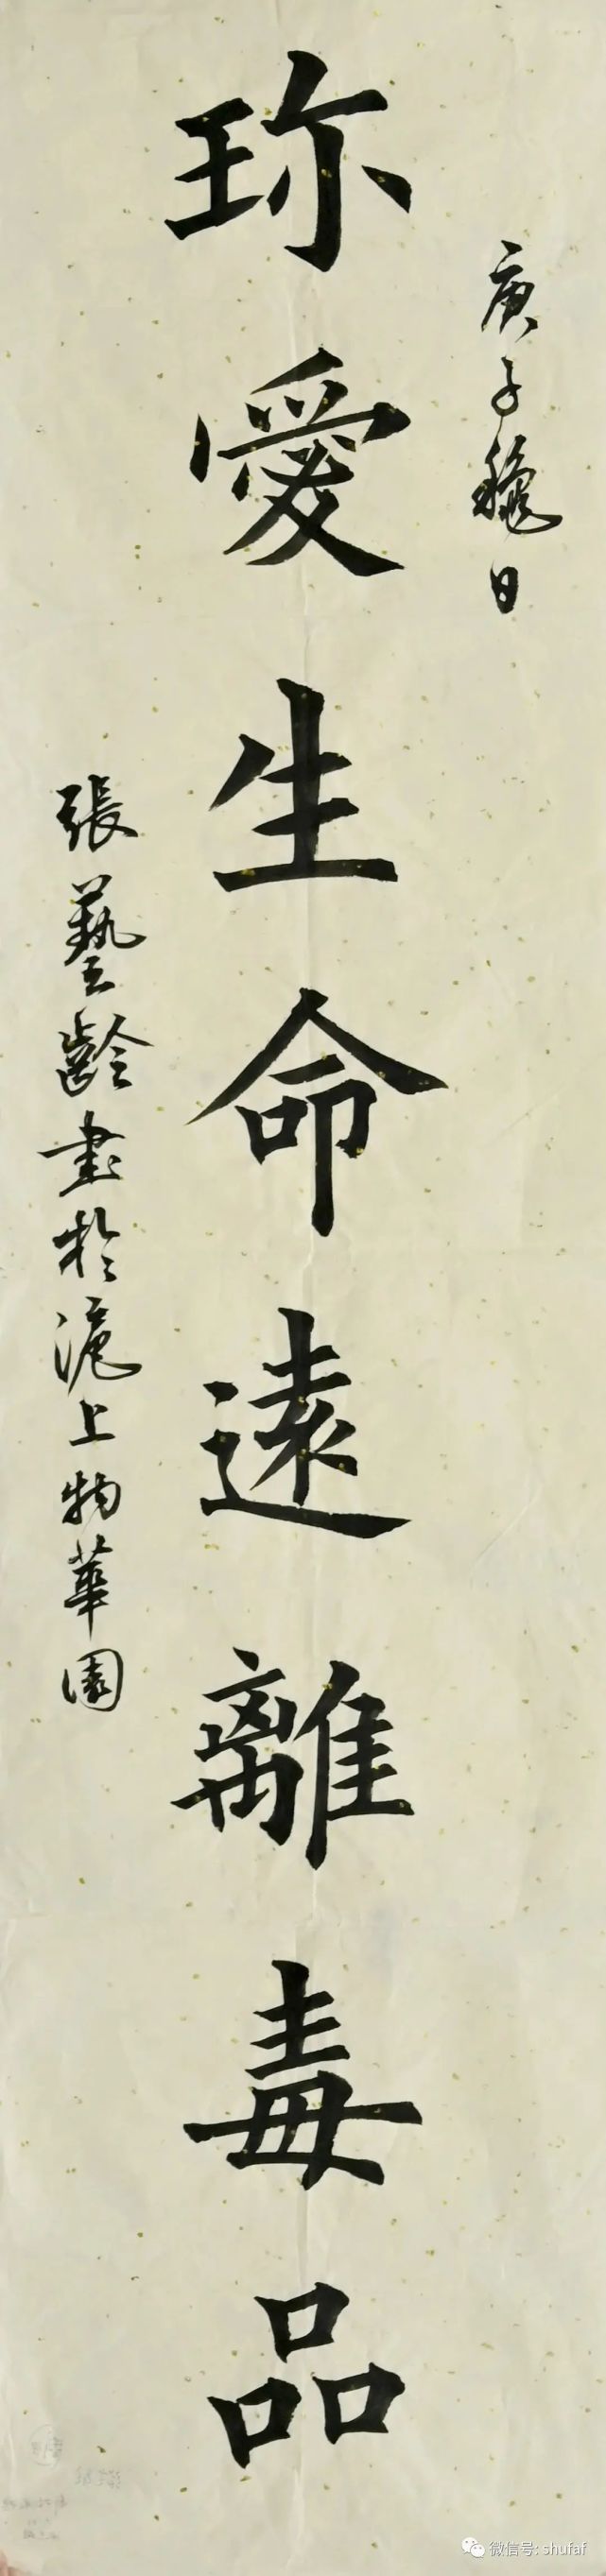 庚子龝日
珎愛生命遠離毒品
張藝齡書於滬上物華園
微信号: shufaf